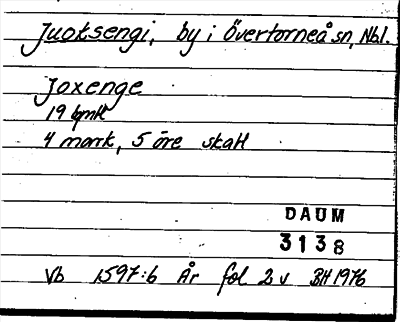 Juoksengi, by i Övertorneå sn, Nbl.
Joxenge
19 bmk
4 mark, 5 öre skatt
DAUM
3138
Vb 1597:6 År fol 2v BH 1976